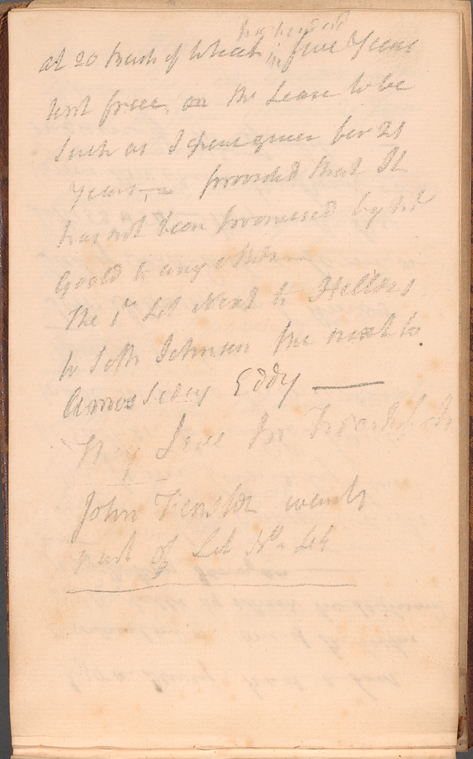 at 20 bush of Wheat in five Years
rent free, on the Lease to be
Such as I have given for 21
Years, — provided that It
has not been promised by Mr
Goold to any other —
The 1st Lot Next to Hellers
to Seth Johnson the next to
Amos Eddy —
John wants
part of Lot No. 44